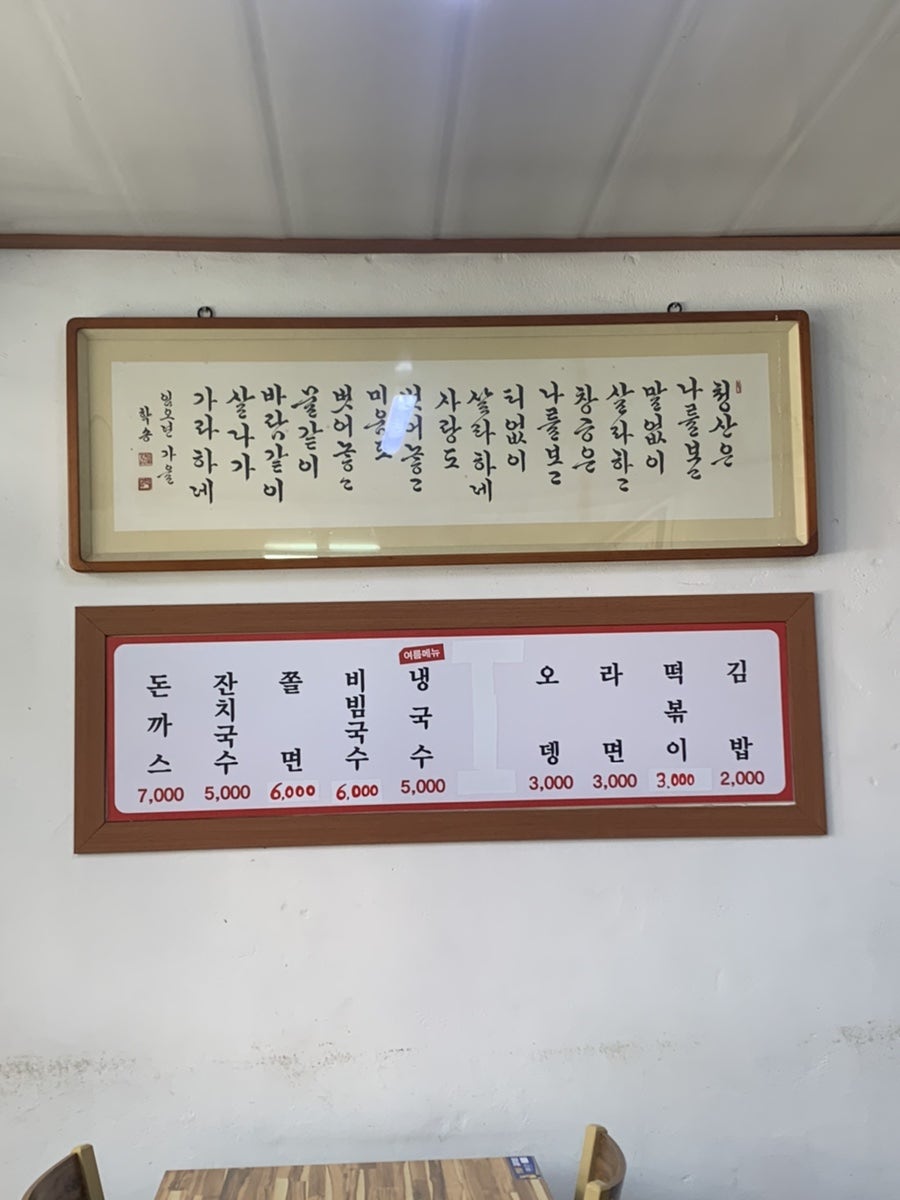 청산은
나를보고
말없이
살라하고
창공은
나를보고
티없이
살라하네
사랑도
벗어놓고
미움도
벗어놓고
물같이
바람같이
살다가
가라하네
임오년 가을
학송
김밥
2,000
떡볶이
3.000
라면
3,000
오뎅
3,000
여름메뉴
냉국수
5,000
비빔국수
6,000
쫄면
6,000
잔치국수
5,000
돈까스
7,000